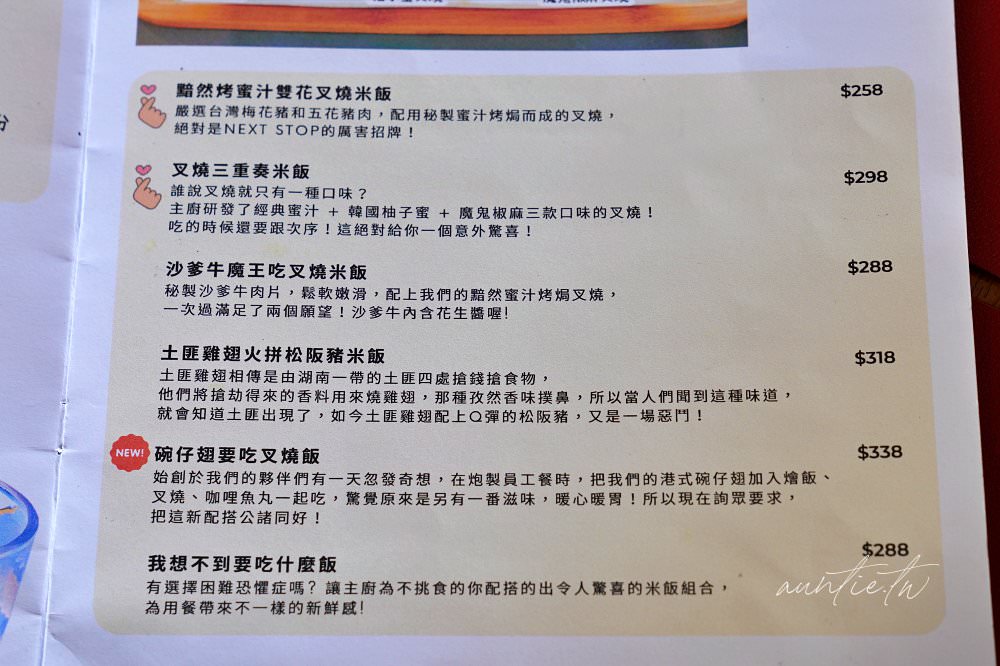 黯然烤蜜汁雙花叉燒米飯 $258
嚴選台灣梅花豬和五花豬肉，配用秘製蜜汁烤焗而成的叉燒，
絕對是NEXT STOP的厲害招牌！
叉燒三重奏米飯 $298
誰說叉燒就只有一種口味？
主廚研發了經典蜜汁 + 韓國柚子蜜 + 魔鬼椒麻三款口味的叉燒！
吃的時候還要跟次序！這絕對給你一個意外驚喜！
沙爹牛魔王吃叉燒米飯 $288
秘製沙爹牛肉片，鬆軟嫩滑，配上我們的黯然蜜汁烤焗叉燒，
一次過滿足了兩個願望！沙爹牛內含花生醬喔!
土匪雞翅火拼松阪豬米飯 $318
土匪雞翅相傳是由湖南一帶的土匪四處搶錢搶食物，
他們將搶劫得來的香料用來燒雞翅，那種孜然香味撲鼻，所以當人們聞到這種味道，
就會知道土匪出現了，如今土匪雞翅配上Q彈的松阪豬，又是一場惡鬥！
NEW! 碗仔翅要吃叉燒飯 $338
始創於我們的夥伴們有一天忽發奇想，在炮製員工餐時，把我們的港式碗仔翅加入燴飯、
叉燒、咖哩魚丸一起吃，驚覺原來是另有一番滋味，暖心暖胃！所以現在詢眾要求，
把這新配搭公諸同好！
我想不到要吃什麼飯 $288
有選擇困難恐懼症嗎? 讓主廚為不挑食的你配搭的出令人驚喜的米飯組合，
為用餐帶來不一樣的新鮮感!
auntie.tw